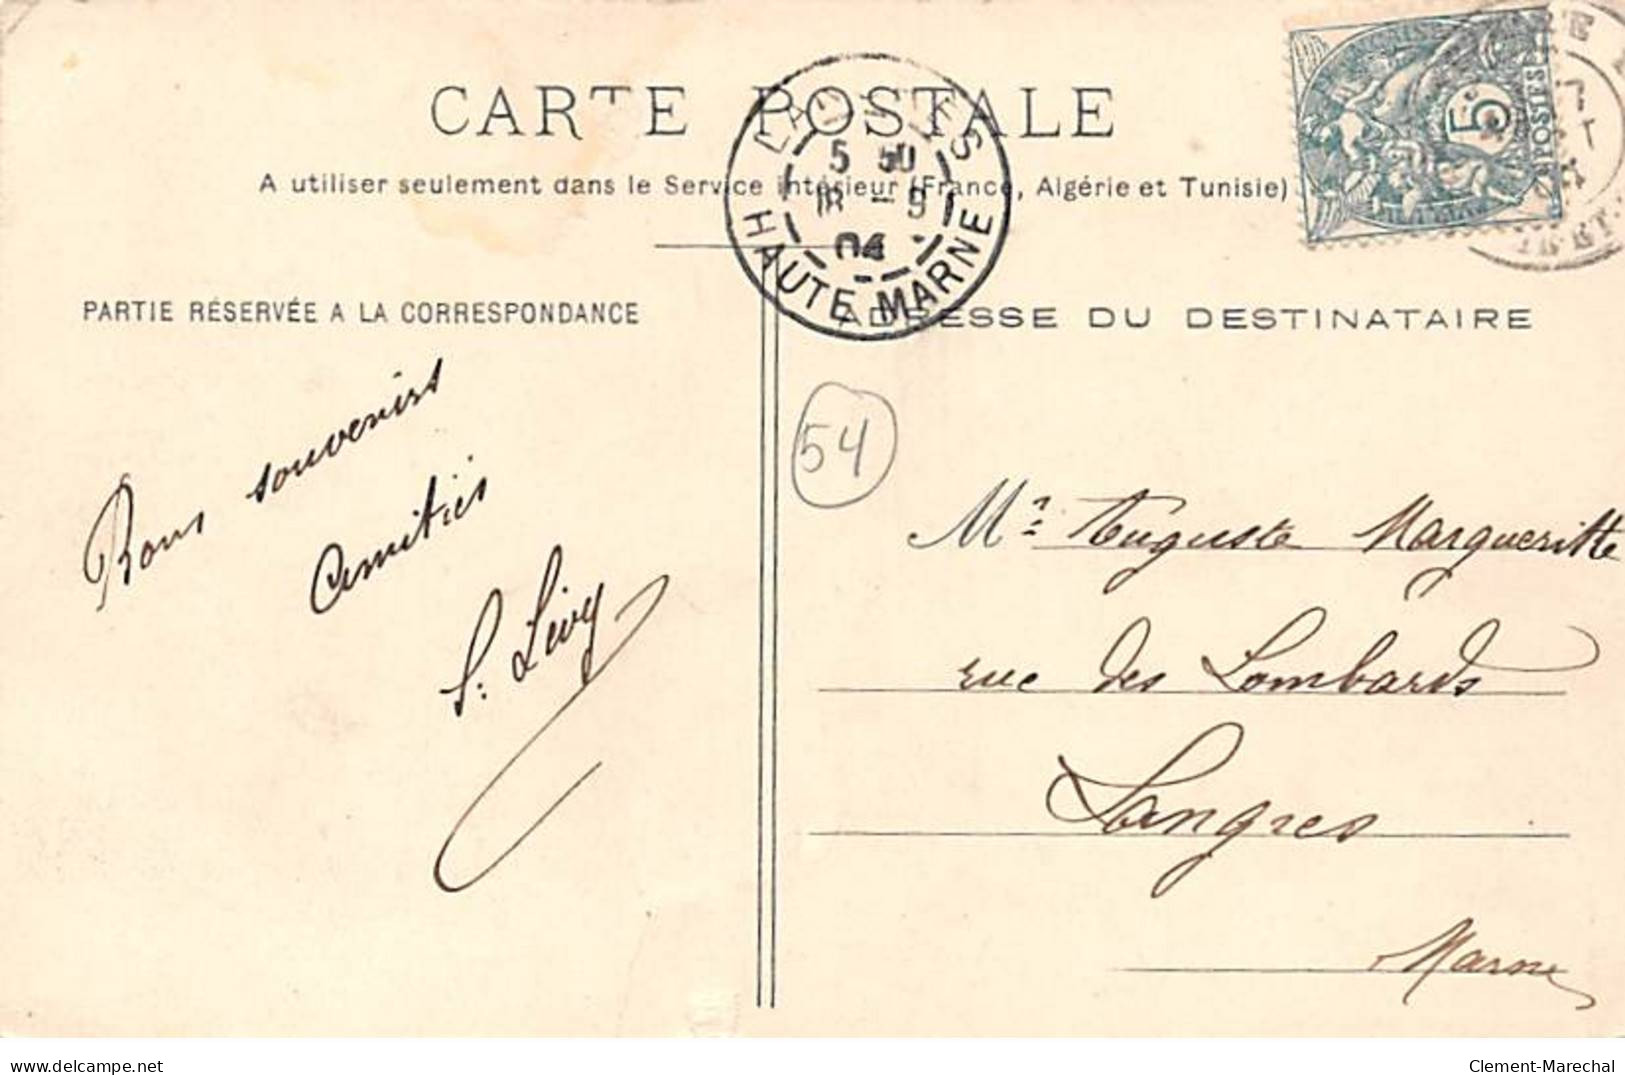 CARTE POSTALE
A utiliser seulement dans le Service intérieur (France, Algérie et Tunisie)
LANGRES
5 50
18 - 9
04
HAUTE MARNE
5
POSTES
PARTIE RÉSERVÉE A LA CORRESPONDANCE
ADRESSE DU DESTINATAIRE
Bons souvenirs
Amitiés
S. Lévy
54
Mr Auguste Margueritte
rue des Lombards
Langres
Marne
www.delcampe.net
Clement-Marechal